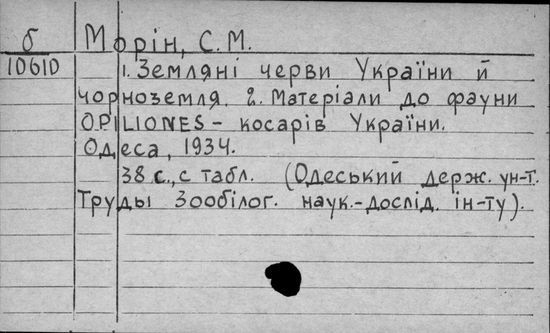 б Морін, С.М.
10610 1. Земляні черви України й
чорноземля. 2. Матеріали до фауни
OPILIONES – косарів України.
Одеса, 1934.
38 с., с табл. (Одеський держ. ун-т.
Труды Зообілог. наук.-дослід. ін-ту).